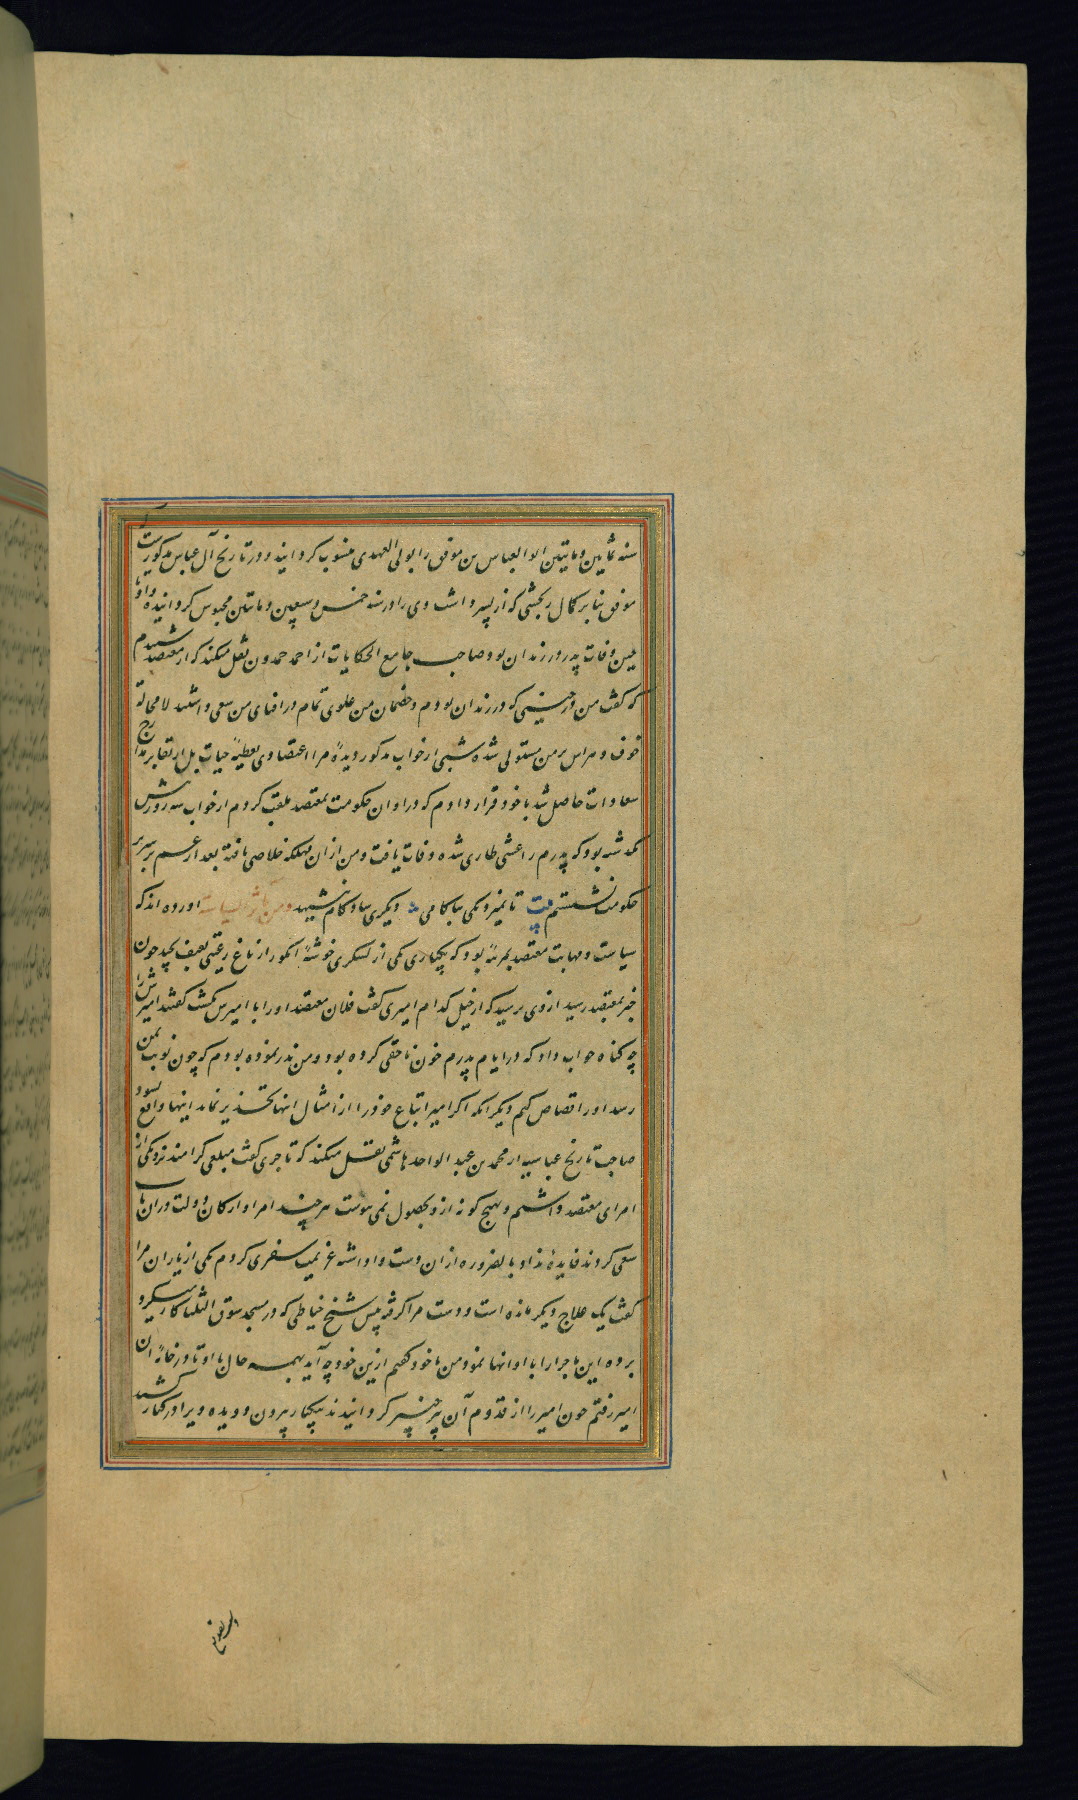 سنه ثمانین و مایتین ابو العباس بن موفق را بولی العهدی منسوب کردانیند و در تاریخ آل عباس مذکورست که
موفق بنابر کمال رنجشی که از پسر داشت وی را در سنه خمس و سبعین و ماتین محبوس کردانیده و او تا
حین وفات پدر در زندان بود صاحب جامع الحکایات از احمد حمدون نقل میکند که از معتضد شنیدم
که کفت من در حینی که در زندان بودم و خصمان من علوی تمام در افنای من سعی داشتند لامحاله
خوف و هراس بر من مستولی شده شبی از خواب مذکور دیدهٔ مرا اعتضادی بعطیهٔ حیات بل ارتقا بر مدارج
سعادات حاصل شد با خود قرار دادم که در اوان حکومت بمعتضد ملقب کردم از خواب سه روز بیش
نکذشته بود که پدرم را غشی طاری شده وفات یافت و من از ان مهلکه خلاصی یافته بعد از عم بر سریر
حکومت نشستم بیت تا نمیرد یکی بناکامی دیکری شادکام ننشیند و من مآثر السیاسته اورده اند که
سیاست و مهابت معتضد بمرتبهٔ بود که یکباری یکی از لشکری خوشهٔ انکور از باغ رعیتی بعنف بچید چون
خبر بمعتضد رسید از وی پرسید که از خیل کدام امیری کفت فلان معتضد او را با امیرش بکشت کفتند امیرش را
چه کناه جواب داد که در ایام پدرم خون ناحقی کرده بود و من نذر نموده بودم که چون نوبت بمن
رسد او را قصاص کنم و دیکر انکه اکر امیر اتباع خود را از امثال اینها تحذیر نماید اینها واقع نشود
صاحب تاریخ عباسیه از محمد بن عبد الواحد هاشمی نقل میکند که تاجری کفت مبلغی کرامند نزد یکی از
امرای معتضد داشتم و بهیچ کونه از و بحصول نمی پیوست هر چند امرا و ارکان دولت در ان باب
سعی کردند فایدهٔ نداد بالضروره از ان دست وا داشته عزیمت سفری کردم یکی از یاران مرا
کفت یک علاج دیکر مانده است و دست مرا کرفته پیش شیخ خیاطی که در مسجد سوق الثلثا کار میکرد
برده این ماجرا را با او انها نمود من با خود کفتم ازین خود چه آید بهمه حال با او تا در خانهٔ ان
امیر رفتم چون امیر را از قدوم آن پیر خبر کردانیدند یکبار بیرون دویده ویرا در کنار کشید